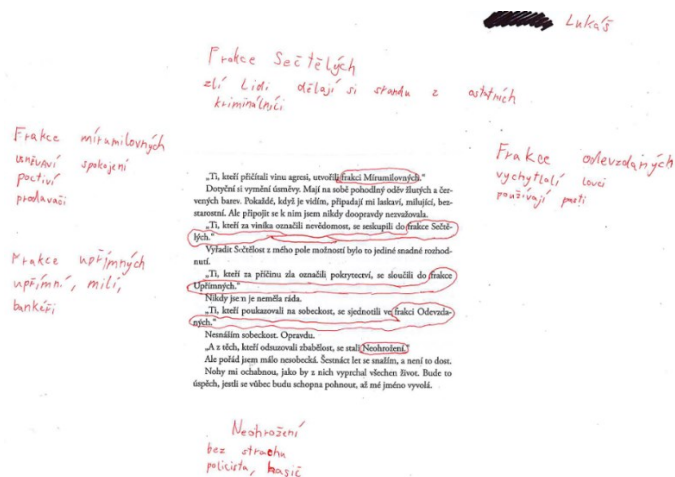 Lukáš
Frakce Sečtělých
zlí Lidi dělají si srandu z ostatních
kriminálníci
Frakce mírumilovných
usměvaví spokojení
poctiví
prodavači
Frakce odevzdaných
vychytralí lovci
používají pasti
Frakce upřímných
upřímní, milí,
bankéři
„Ti, kteří přičítali vinu agresi, utvořili frakci Mírumilovných.“
Dotyční si vymění úsměvy. Mají na sobě pohodlný oděv žlutých a čer-
vených barev. Pokaždé, když je vidím, připadají mi laskaví, milující, bez-
starostní. Ale připojit se k nim jsem nikdy doopravdy nezvažovala.
„Ti, kteří za viníka označili nevědomost, se seskupili do frakce Sečtě-
lých.“
Vyřadit Sečtělost z mého pole možností bylo to jediné snadné rozhod-
nutí.
„Ti, kteří za příčinu zla označili pokrytectví, se sloučili do frakce
Upřímných.“
Nikdy jsem je neměla ráda.
„Ti, kteří poukazovali na sobeckost, se sjednotili ve frakci Odevzda-
ných.“
Nesnáším sobeckost. Opravdu.
„A z těch, kteří odsuzovali zbabělost, se stali Neohrožení.“
Ale pořád jsem málo nesobecká. Šestnáct let se snažím, a není to dost.
Nohy mi ochabnou, jako by z nich vyprchal všechen život. Bude to
úspěch, jestli se vůbec budu schopna pohnout, až mé jméno vyvolá.
Neohrožení
bez strachu
policista, hasič